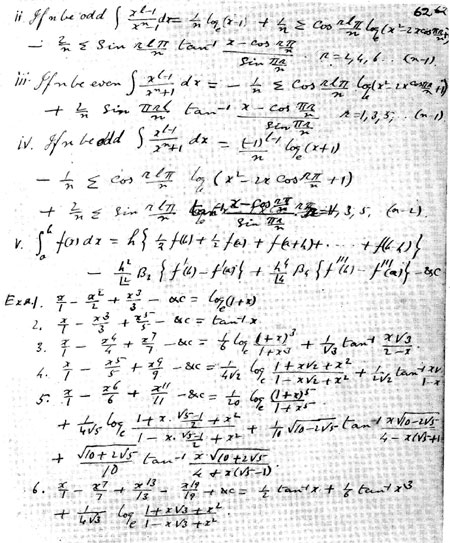 62
ii. If n be odd ∫ x^{l-1}/(x^n-1) dx = 1/n log_e(x-1) + 1/n Σ cos rlπ/n log_e(x²-2x cos πr/n+1)
- 2/n Σ sin rlπ/n tan⁻¹ (x - cos rπ/n)/(sin πr/n) r = 2, 4, 6.. (n-1).
iii If n be even ∫ x^{l-1}/(x^n+1) dx = - 1/n Σ cos rlπ/n log_e(x²-2x cos πr/n+1)
+ 2/n Σ sin πrl/n tan⁻¹ (x - cos πr/n)/(sin πr/n) r = 1, 3, 5; .. (n-1)
iv. If n be odd ∫ x^{l-1}/(x^n+1) dx = (-1)^{l-1}/n log_e(x+1)
- 1/n Σ cos rlπ/n log_e (x² - 2x cos rπ/n + 1)
+ 2/n Σ sin rlπ/n tan⁻¹ (x - cos rπ/n)/(sin rπ/n) r = 1, 3, 5, (n-2).
v. ∫_a^b f(x) dx = h { ½ f(b) + ½ f(a) + f(a+h) + ... + f(b-h) }
- h²/|2 B₂ { f'(b) - f'(a) } + h⁴/|4 B₄ { f'''(b) - f'''(a) } - &c
Ex. 1. x/1 - x²/2 + x³/3 - &c = log_e(1+x)
2. x/1 - x³/3 + x⁵/5 - &c = tan⁻¹ x
3. x/1 - x⁴/4 + x⁷/7 - &c = 1/6 log_e (1+x)³/(1+x³) + 1/√3 tan⁻¹ x√3/(2-x)
4. x/1 - x⁵/5 + x⁹/9 - &c = 1/(4√2) log_e (1+x√2+x²)/(1-x√2+x²) + 1/(2√2) tan⁻¹ x√2/(1-x²)
5. x/1 - x⁶/6 + x¹¹/11 - &c = 1/20 log_e (1+x)⁵/(1+x⁵)
+ 1/(4√5) log_e (1 + x·(√5-1)/2 + x²)/(1 - x·(√5+1)/2 + x²) + 1/10 √(10-2√5) tan⁻¹ x√(10-2√5)/(4 - x(√5+1))
+ √(10+2√5)/10 tan⁻¹ x√(10+2√5)/(4 + x(√5-1)).
6. x/1 - x⁷/7 + x¹³/13 - x¹⁹/19 + &c = ½ tan⁻¹ x + 1/6 tan⁻¹ x³
+ 1/(4√3) log_e (1+x√3+x²)/(1-x√3+x²).